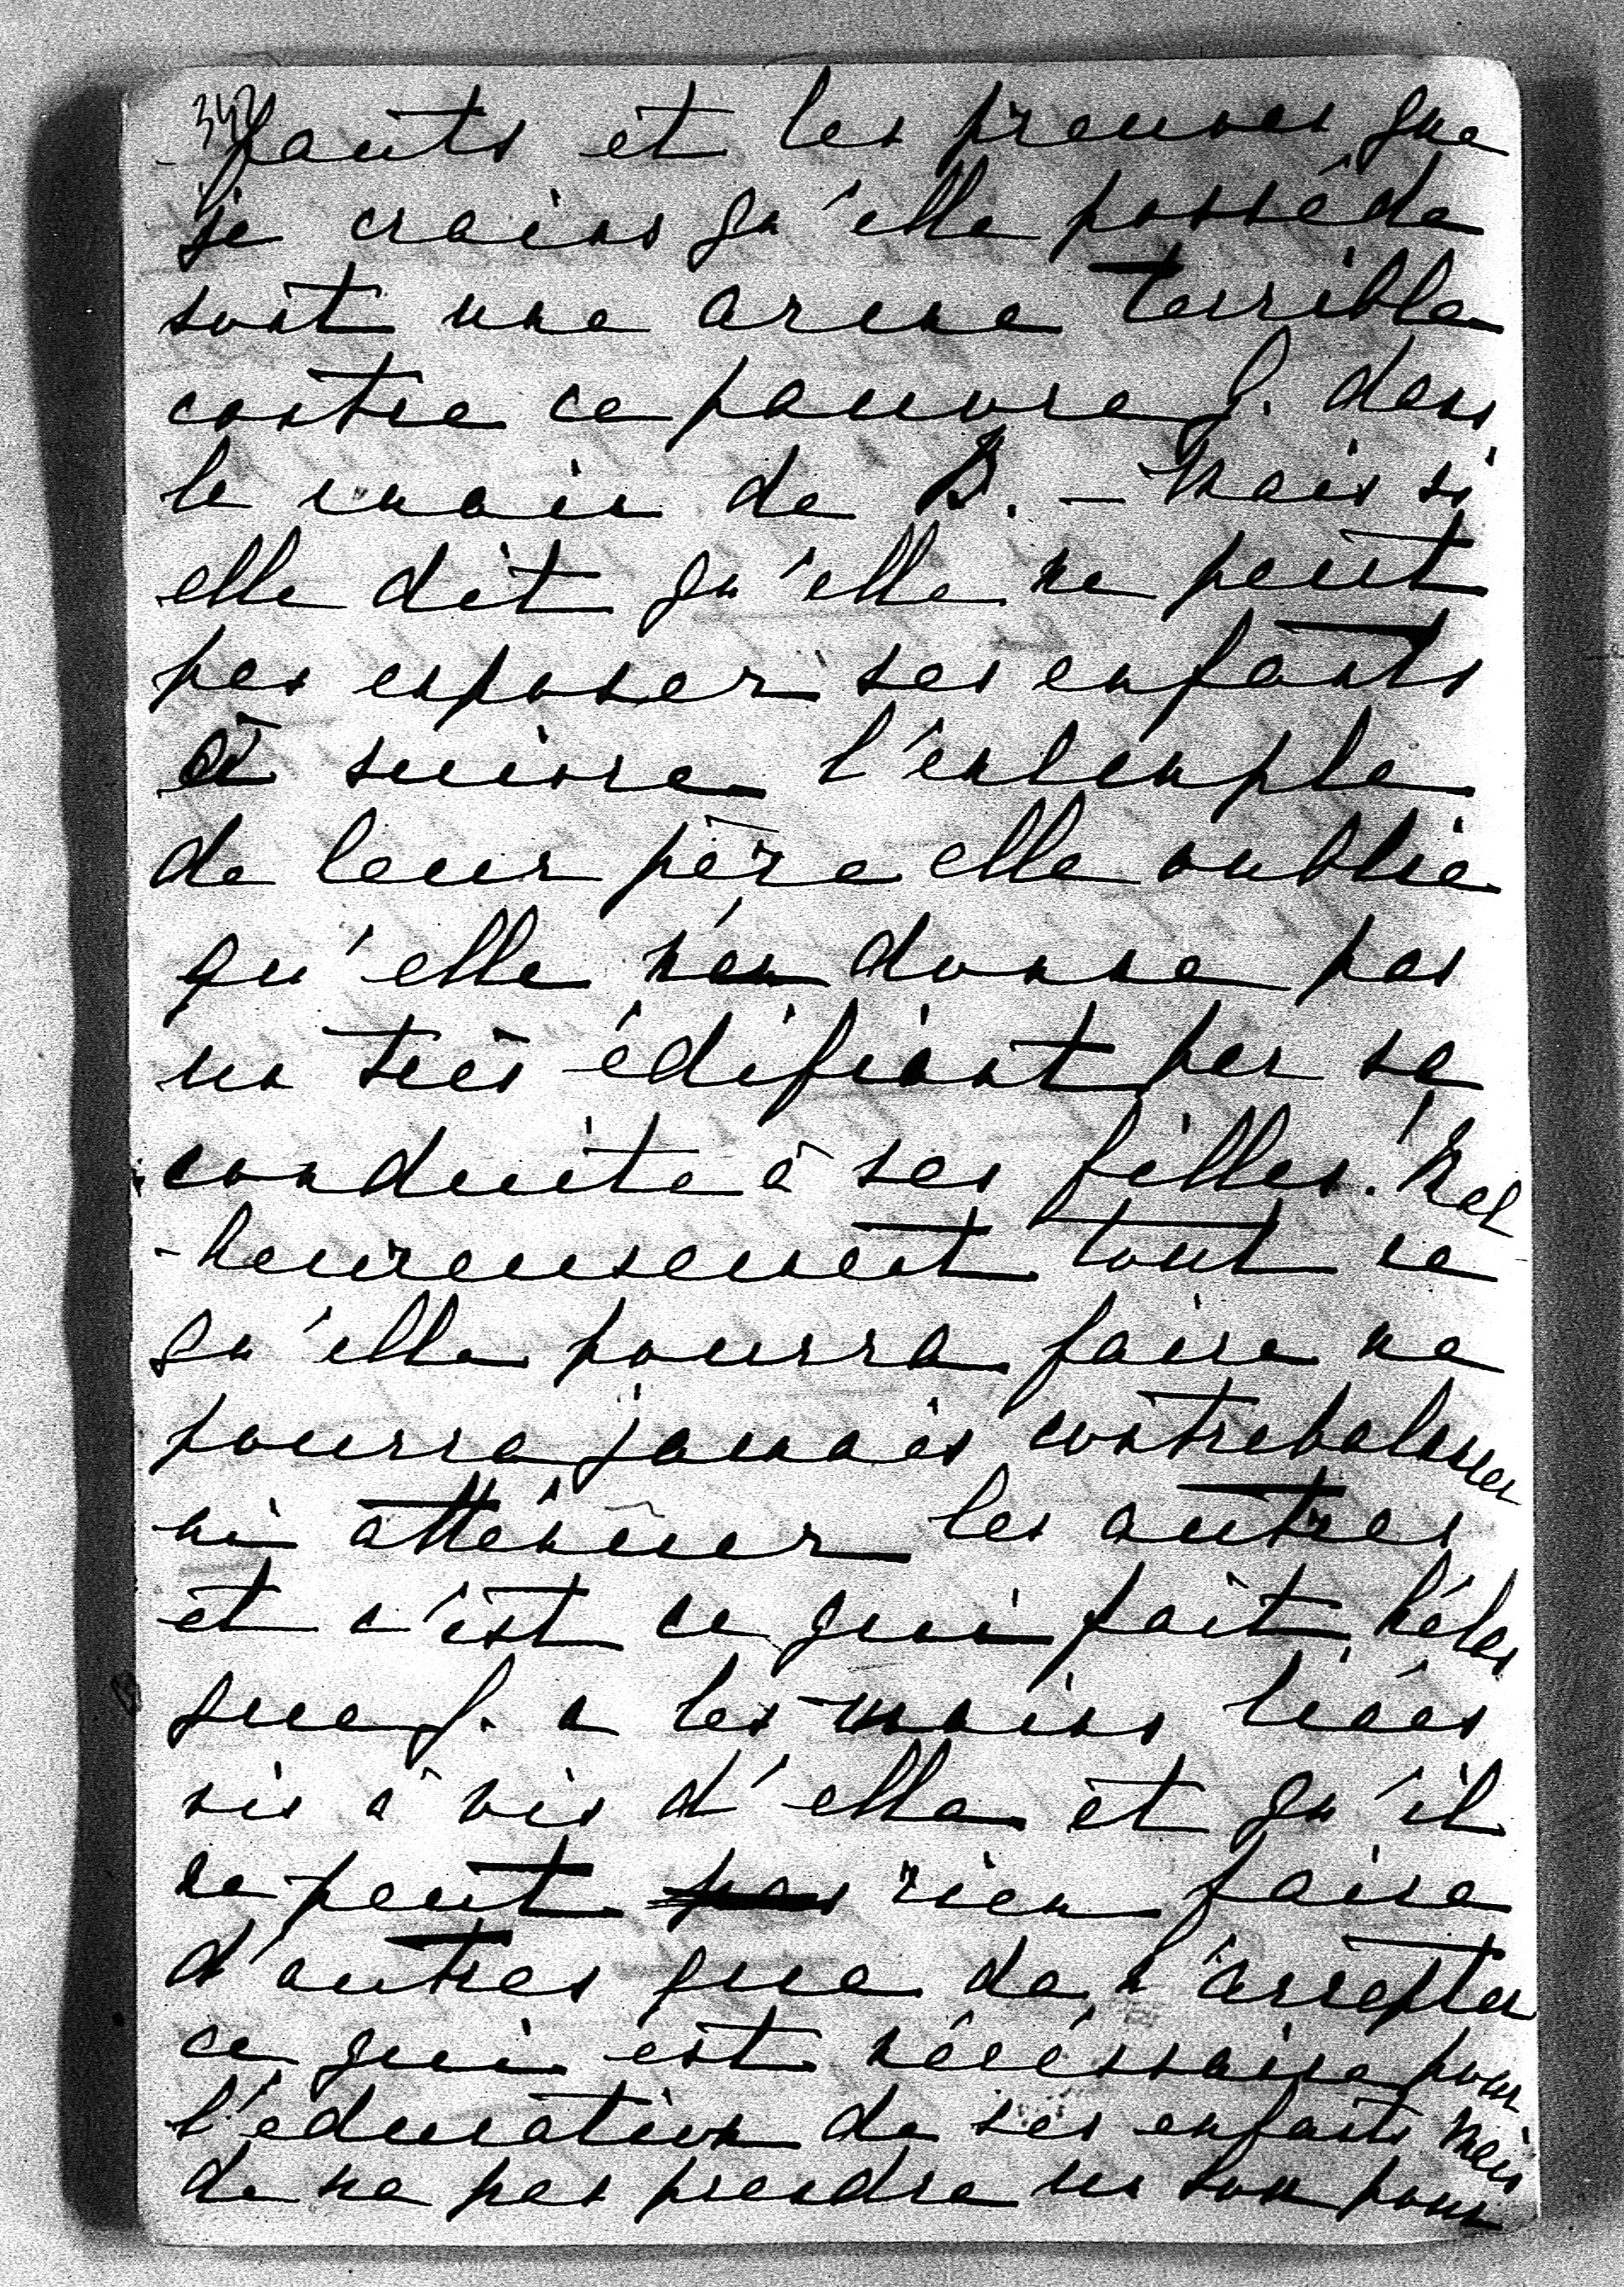 342
-fants et les preuves que
je crains qu'elle possède
sont une arme terrible
contre ce pauvre J. dans
le main de B. — Mais si
elle dit qu'elle ne peut
pas exposer ses enfants
à suivre l'exemple
de leur père elle oublie
qu'elle n'en donne pas
un très édifiant par sa
conduite à ses filles. Mal
-heureusement tout ce
qu'elle pourra faire ne
pourra jamais contrebalancer
ni atténuer les autres
et c'est ce qui fait hélas
que J. a les mains liées
vis à vis d'elle et qu'il
ne peut pas rien faire
d'autres que de l'accepter
ce qui est nécéssaire pour
l'education de ses enfants mais
de ne pas prendre un son pour